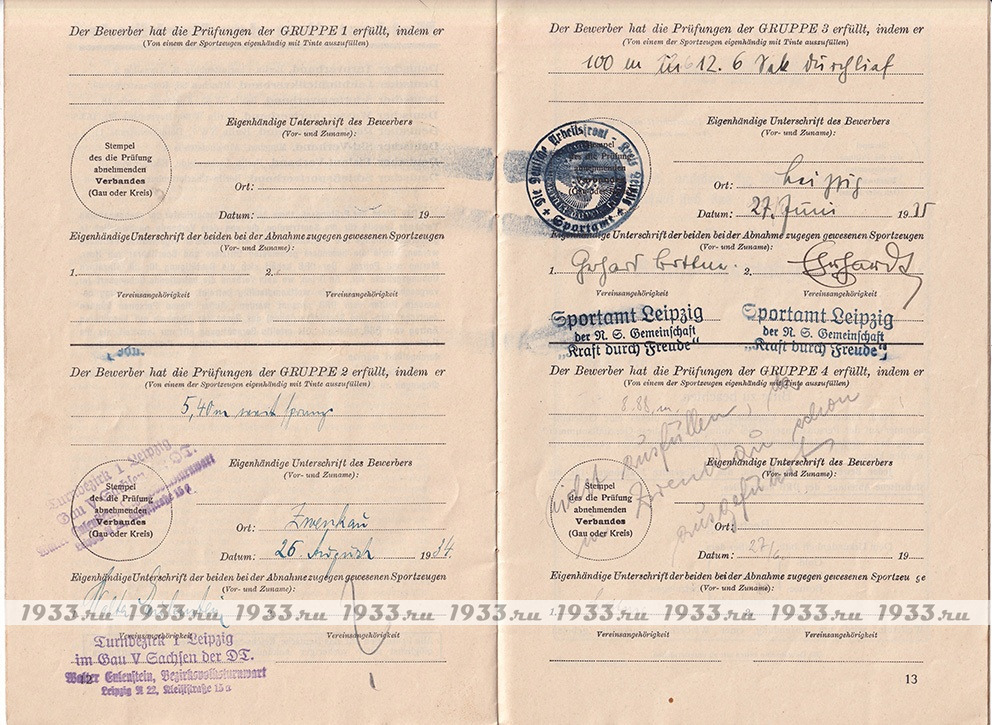 Der Bewerber hat die Prüfungen der GRUPPE 1 erfüllt, indem er
(Von einem der Sportzeugen eigenhändig mit Tinte auszufüllen)
Eigenhändige Unterschrift des Bewerbers
(Vor- und Zuname):
Stempel
des die Prüfung
abnehmenden
Verbandes
(Gau oder Kreis)
Ort:
Datum: 19
Eigenhändige Unterschrift der beiden bei der Abnahme zugegen gewesenen Sportzeugen
(Vor- und Zuname):
1. 2.
Vereinsangehörigkeit Vereinsangehörigkeit
Der Bewerber hat die Prüfungen der GRUPPE 2 erfüllt, indem er
(Von einem der Sportzeugen eigenhändig mit Tinte auszufüllen)
5,40 m weit sprang
Eigenhändige Unterschrift des Bewerbers
(Vor- und Zuname):
Turnbezirk 1 Leipzig
Gau V Sachsen DT.
Stempel
des die Prüfung
abnehmenden
Verbandes
(Gau oder Kreis)
Ort: Zwenkau
Datum: 26 August 1934.
Eigenhändige Unterschrift der beiden bei der Abnahme zugegen gewesenen Sportzeugen
(Vor- und Zuname):
Vereinsangehörigkeit Vereinsangehörigkeit
Turnbezirk 1 Leipzig
im Gau V Sachsen der DT.
Walter Eulenstein, Bezirksvolksturnwart
Leipzig N 22, Kleiststraße 15a
12
Der Bewerber hat die Prüfungen der GRUPPE 3 erfüllt, indem er
(Von einem der Sportzeugen eigenhändig mit Tinte auszufüllen)
100 m in 12.6 Sek durchlief
Eigenhändige Unterschrift des Bewerbers
(Vor- und Zuname):
Die Deutsche Arbeitsfront - Kreis Leipzig
Sportamt
Stempel
des die Prüfung
abnehmenden
Verbandes
(Gau oder Kreis)
Ort: Leipzig
Datum: 27. Juni 1935
Eigenhändige Unterschrift der beiden bei der Abnahme zugegen gewesenen Sportzeugen
(Vor- und Zuname):
1. Gerhard 2. Ehrhardt
Vereinsangehörigkeit Vereinsangehörigkeit
Sportamt Leipzig Sportamt Leipzig
der N. S. Gemeinschaft der N. S. Gemeinschaft
„Kraft durch Freude" „Kraft durch Freude"
Der Bewerber hat die Prüfungen der GRUPPE 4 erfüllt, indem er
(Von einem der Sportzeugen eigenhändig mit Tinte auszufüllen)
8.88 m.
nicht ausfüllen, da
in Zwenkau schon
ausgeführt
Eigenhändige Unterschrift des Bewerbers
(Vor- und Zuname):
Stempel
des die Prüfung
abnehmenden
Verbandes
(Gau oder Kreis)
Ort:
Datum: 27/6 19
Eigenhändige Unterschrift der beiden bei der Abnahme zugegen gewesenen Sportzeugen
(Vor- und Zuname):
1. 2.
Vereinsangehörigkeit Vereinsangehörigkeit
13
1933.ru 1933.ru 1933.ru 1933.ru 1933.ru 1933.ru 1933.ru 1933.ru 1933.ru 1933.ru